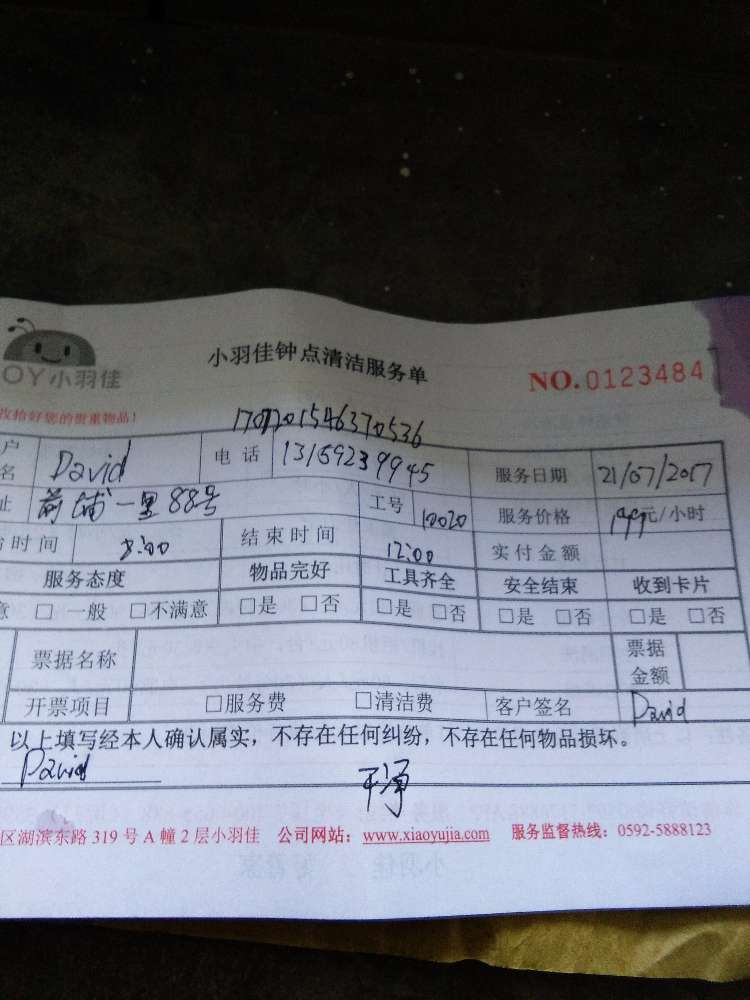 小羽佳钟点清洁服务单
NO.0123484
OY小羽佳
收拾好您的贵重物品！
1707201546370536
户名 David 电话 13159239945 服务日期 21/07/2017
址 前埔一里88号 工号 10020 服务价格 元/小时
时间 8:00 结束时间 12:00 实付金额
服务态度 物品完好 工具齐全 安全结束 收到卡片
意 □一般 □不满意 □是 □否 □是 □否 □是 □否 □是 □否
票据名称 票据金额
开票项目 □服务费 □清洁费 客户签名 David
以上填写经本人确认属实，不存在任何纠纷，不存在任何物品损坏。
David 干净
区湖滨东路 319 号 A 幢 2 层小羽佳 公司网站：www.xiaoyujia.com 服务监督热线：0592-5888123